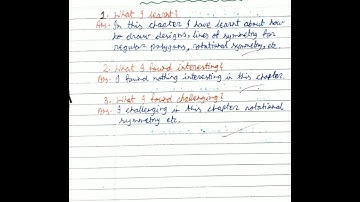 1. What I learnt?
Ans- In this chapter I have learnt about how
to draw designs, lines of symmetry for
regular polygons, rotational symmetry etc
2. What I found interesting?
Ans. I found nothing interesting in this chapter.
3. What I found challenging?
Ans. I challenging in this chapter rotational
symmetry etc.